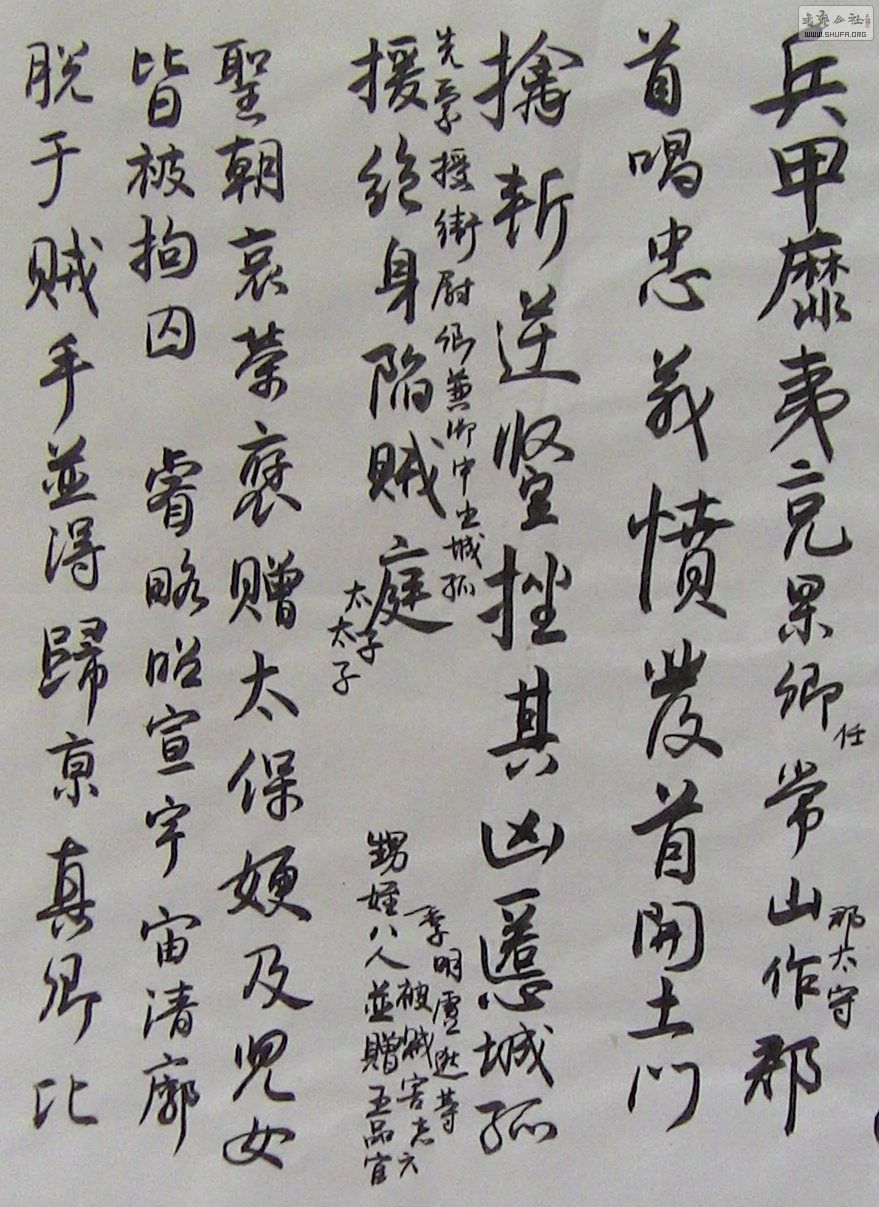 兵甲靡夷兄杲卿常山作郡
任
郡太守
首唱忠義憤發首開土門
擒斬逆豎挫其凶慝城孤
先蒙授衛尉卿兼御中丞城孤
援絕身陷賊庭
太子
太子
季明盧逖等
被賊害者六
甥姪八人並贈五品官
聖朝哀榮褒贈太保嫂及兒女
皆被拘囚 睿略昭宣宇宙清廓
脫于賊手並得歸京真卿比
WWW.SHUFA.ORG